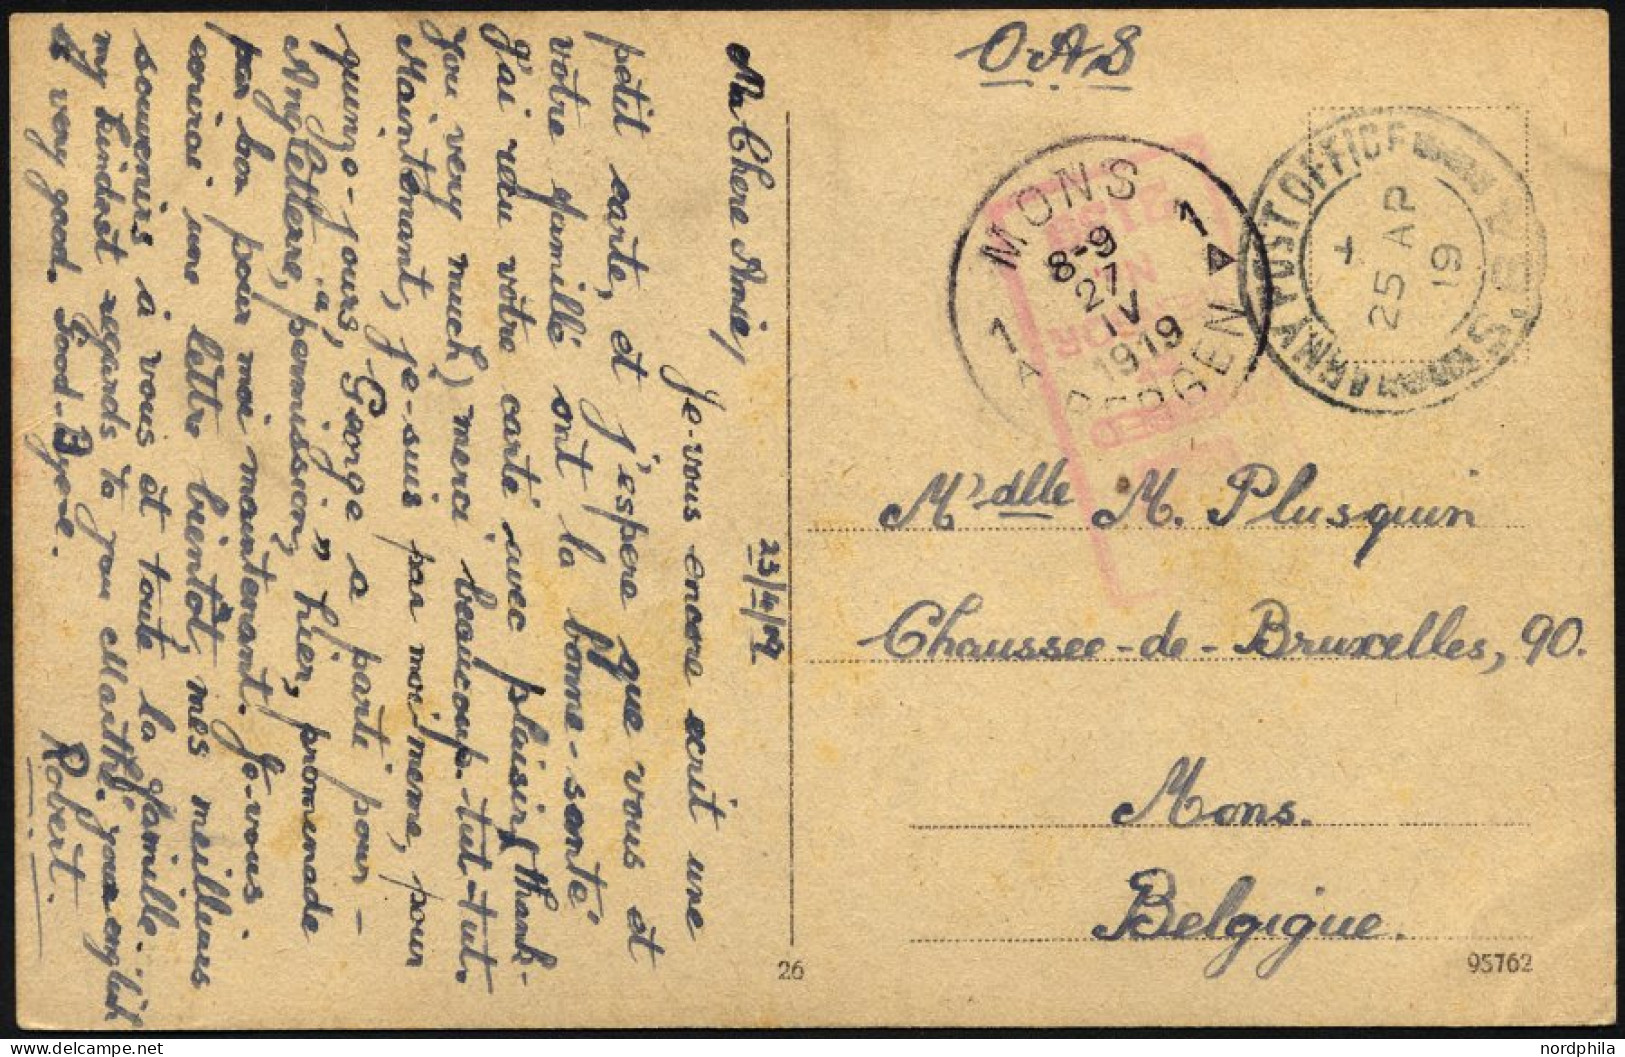 O.A.S
MONS
1 1
A A
8-9
27
IV
1919
BERGEN
ARMY POST OFFICE
25 AP
19
S.
M'dlle M. Plusquin
Chaussee-de-Bruxelles, 90.
Mons.
Belgique.
26
95762
23/4/19
Ma Chere Amie,
Je-vous encore ecrit une
petit carte, et j'espere que vous et
votre famille sont la bonne-santé
J'ai reçu votre carte avec plaisir (thank-
you very much) merci beaucoup. tut-tut.
Maintenant, je-suis par moi meme, pour
quinze-jours, George a parti pour-
Angleterre, "a permission" hier, promenade
pas bon pour moi maintenant. Je-vous
ecrirai une lettre bientôt, mes meilleurs
souvenirs à vous et toute la famille.
my kindest regards to you Marthe. your english
is very good. Good-Byee.
Robert.